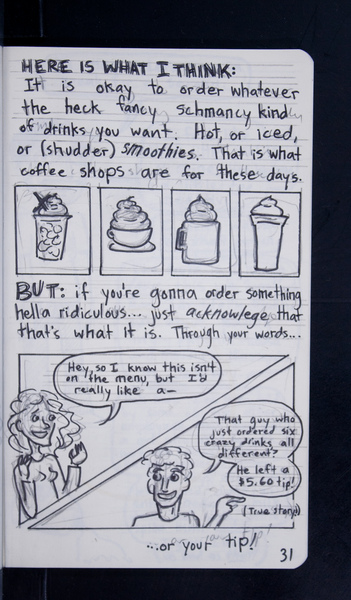 HERE IS WHAT I THINK:
It is okay to order whatever
the heck fancy schmancy kind
of drinks you want. Hot, or iced,
or (shudder) smoothies. That is what
coffee shops are for these days.
BUT: if you're gonna order something
hella ridiculous... just acknowlege that
that's what it is. Through your words...
Hey, so I know this isn't
on the menu, but I'd
really like a—
That guy who
just ordered six
crazy drinks, all
different?
He left a
$5.60 tip!
(True story)
...or your tip!
31